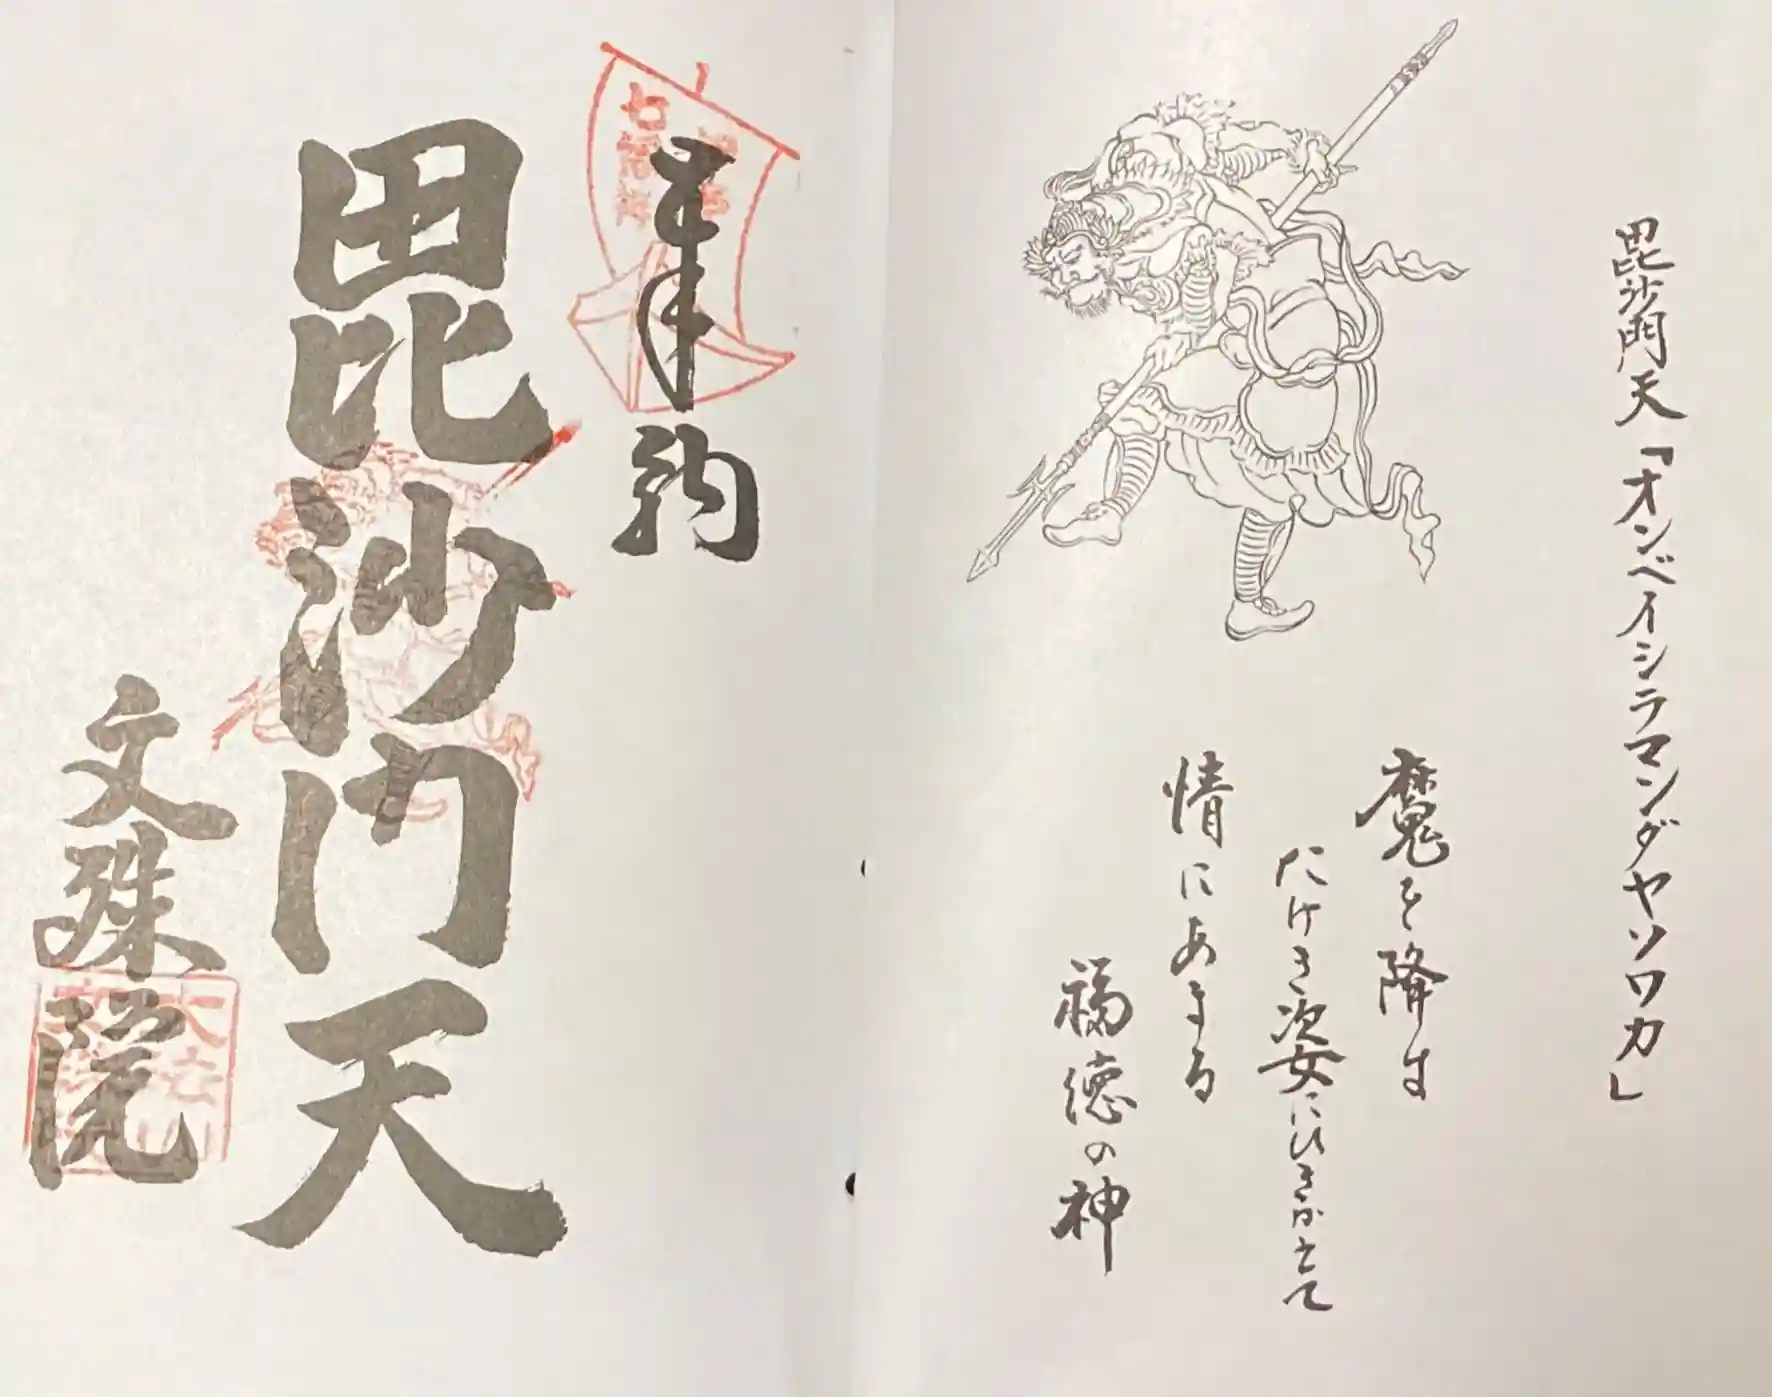 毘沙門天「オンベイシラマンダヤソワカ」
魔を降す
たけき姿にひきかえて
情にあまる
福徳の神
奉納
七福神
毘沙門天
文殊院